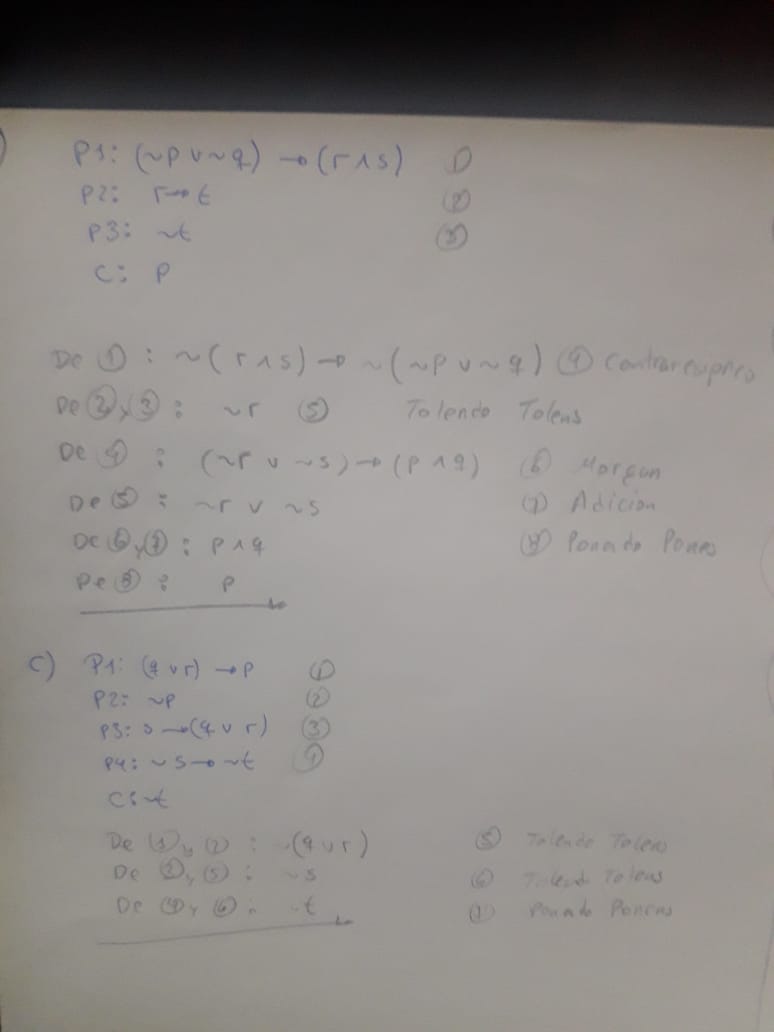 )
P1: (~p ∨ ~q) → (r ∧ s) ①
P2: r → t ②
P3: ~t ③
C: p
De ①: ~(r ∧ s) → ~(~p ∨ ~q) ④
De ②y③: ~r ⑤ Tolendo Tolens
De ④: (~r ∨ ~s) → (p ∧ q) ⑥ Morgan
De ⑤: ~r ∨ ~s ⑦ Adicion
De ⑥y⑦: p ∧ q ⑧ Ponado Ponens
De ⑧: p
c) P1: (q ∨ r) → p ①
P2: ~p ②
P3: s → (q ∨ r) ③
P4: ~s → ~t ④
C: ~t
De ①y②: ~(q ∨ r) ⑤ Tolendo Tolens
De y⑤: ~s ⑥ Tolendo Tolens
De ④y⑥: ~t Ponado Ponens